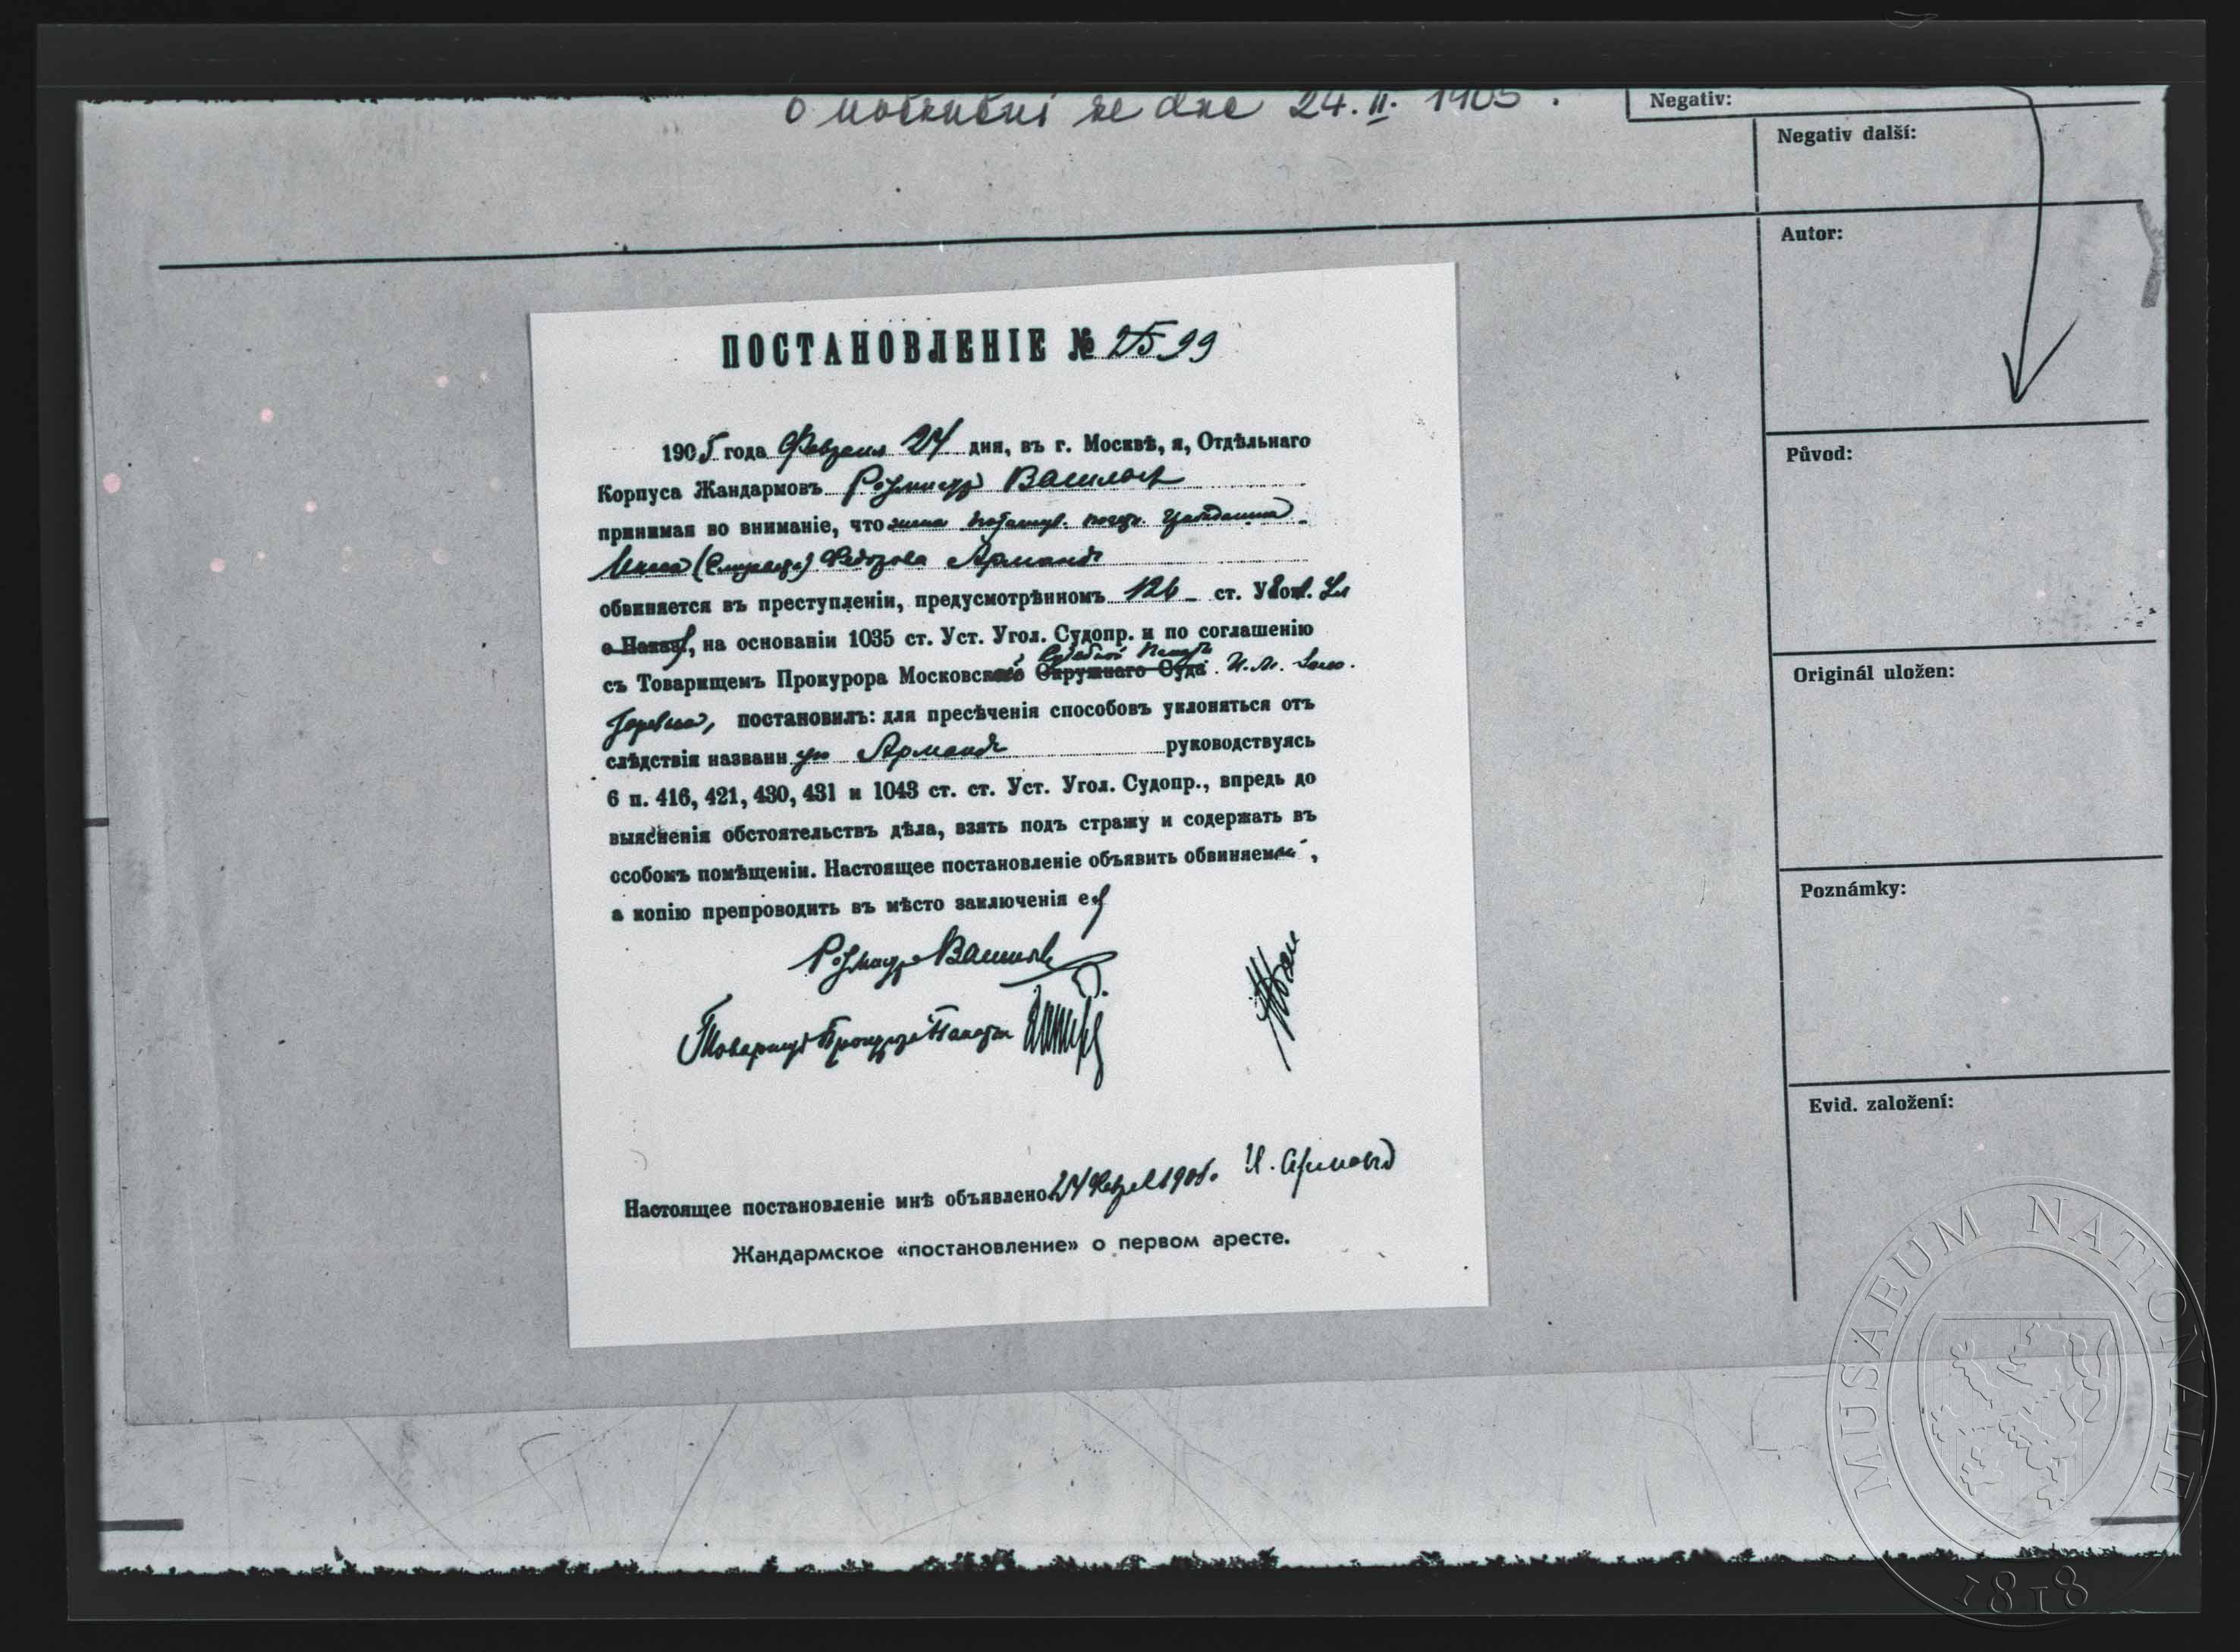 ze dne 24. II. 1905.
Negativ:
Negativ další:
Autor:
Původ:
Originál uložen:
Poznámky:
Evid. založení:
ПОСТАНОВЛЕНІЕ № 2599
1905 года Февраля 24 дня, въ г. Москвѣ, я, Отдѣльнаго
Корпуса Жандармовъ Ротмистръ Васильевъ
принимая во вниманіе, что жена потомст. почет. гражданина
Инеса (Елизавета) Федорова Армандъ
обвиняется въ преступленіи, предусмотрѣнномъ 126 ст. Угол. Ул
о Наказ, на основаніи 1035 ст. Уст. Угол. Судопр. и по соглашенію
съ Товарищемъ Прокурора Московской Окружнаго Суда Судебной Палаты
постановилъ: для пресѣченія способовъ уклоняться отъ
слѣдствія названную Армандъ руководствуясь
6 п. 416, 421, 430, 431 и 1043 ст. ст. Уст. Угол. Судопр., впредь до
выясненія обстоятельствъ дѣла, взять подъ стражу и содержать въ
особомъ помѣщеніи. Настоящее постановленіе объявить обвиняемой,
а копію препроводить въ мѣсто заключенія ея
Ротмистръ Васильевъ
Товарищъ Прокурора Палаты
Настоящее постановленіе мнѣ объявлено 24 Февраля 1905 г. И. Армандъ
Жандармское «постановление» о первом аресте.
MUSAEUM NATIONALE
1818